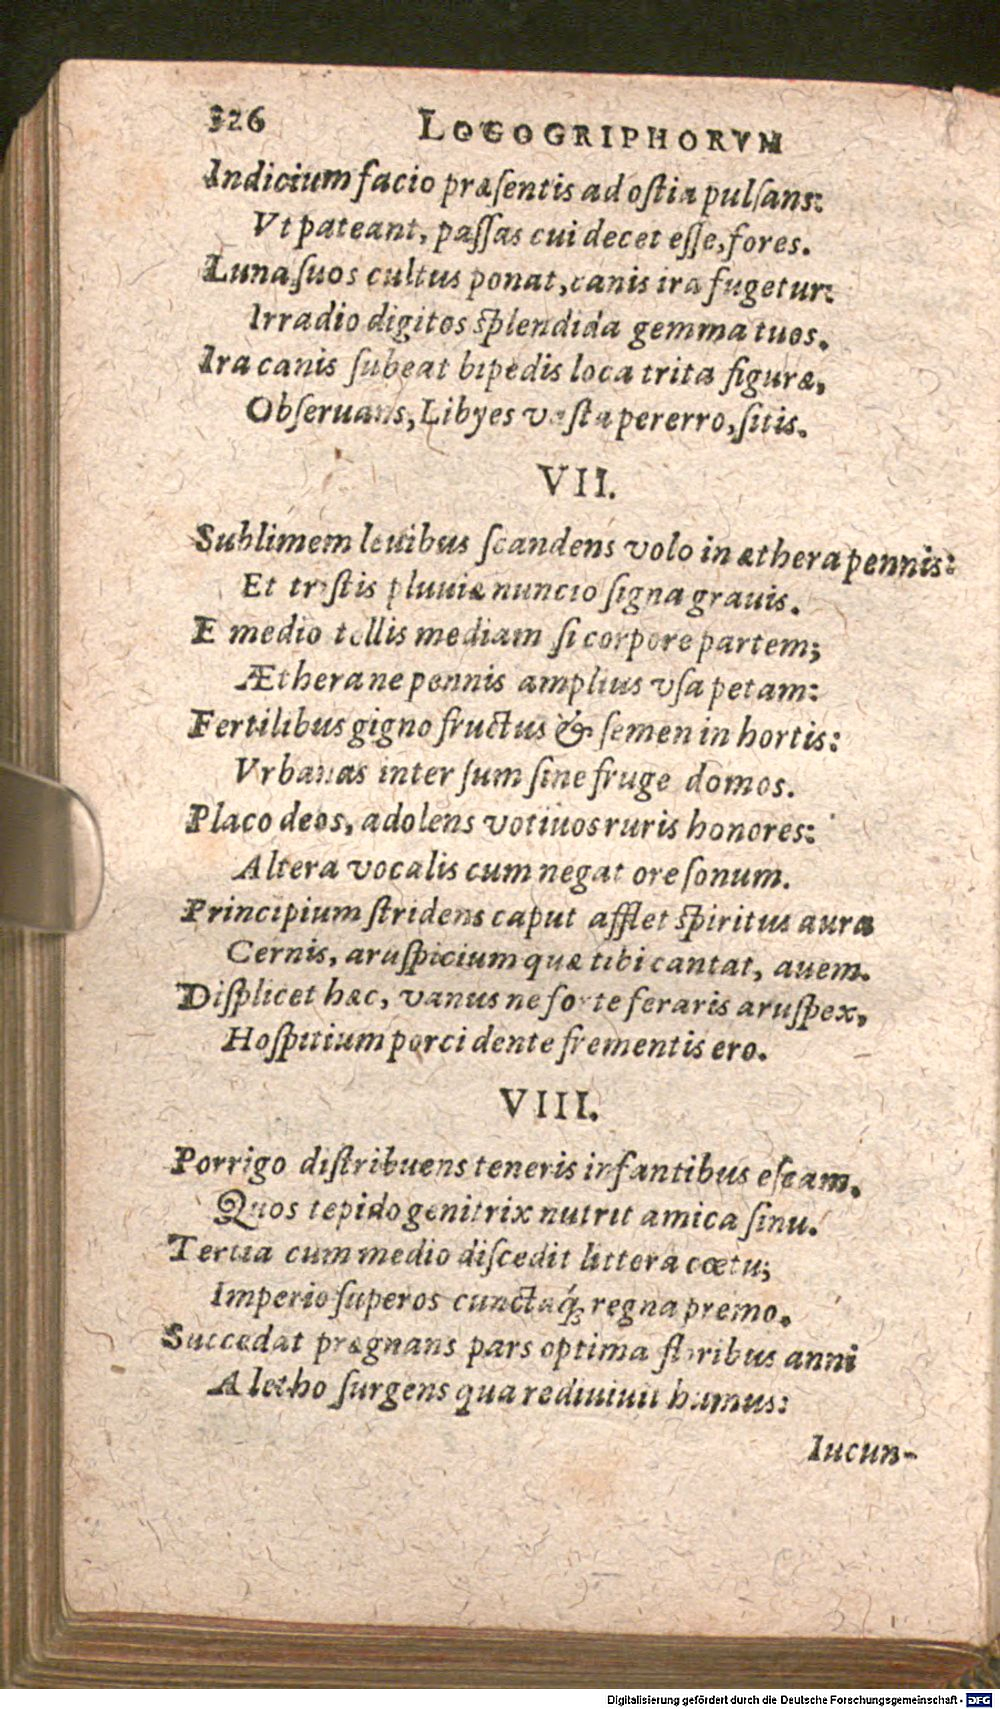 326 LOGOGRIPHORVM
Indicium facio præſentis ad oſtia pulſans:
Vt pateant, paſſas cui decet eſſe, fores.
Luna ſuos cultus ponat, canis ira fugetur:
Irradio digitos ſplendida gemma tuos.
Ira canis ſubeat bipedis loca trita figuræ,
Obſeruans, Libyes vaſta pererro, ſitis.
VII.
Sublimem leuibus ſcandens volo in æthera pennis:
Et triſtis pluuiæ nuncio ſigna grauis.
E medio tollis mediam ſi corpore partem;
Æthera ne pennis amplius vſa petam:
Fertilibus gigno fructus & ſemen in hortis:
Vrbanas inter ſum ſine fruge domos.
Placo deos, adolens votiuos ruris honores:
Altera vocalis cum negat ore ſonum.
Principium ſtridens caput afflet ſpiritus auræ
Cernis, aruſpicium quæ tibi cantat, auem.
Diſplicet hæc, vanus ne forte feraris aruſpex,
Hoſpitium porci dente frementis ero.
VIII.
Porrigo diſtribuens teneris infantibus eſcam.
Quos tepido genitrix nutrit amica ſinu.
Tertia cum medio diſcedit littera cœtu;
Imperio ſuperos cunctaq́; regna premo.
Succedat prægnans pars optima floribus anni
A letho ſurgens qua rediuiuit humus:
Iucun-
Digitalisierung gefördert durch die Deutsche Forschungsgemeinschaft - DFG